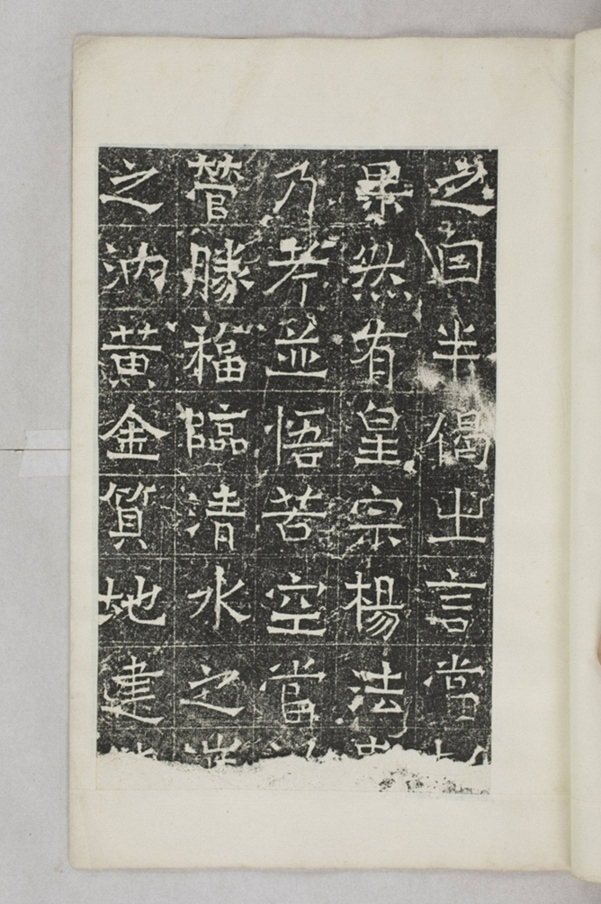 之曰半偈出言當
果然有皇宗楊法
乃考並悟苦空當
營勝福臨清水之
之汭黄金質地建